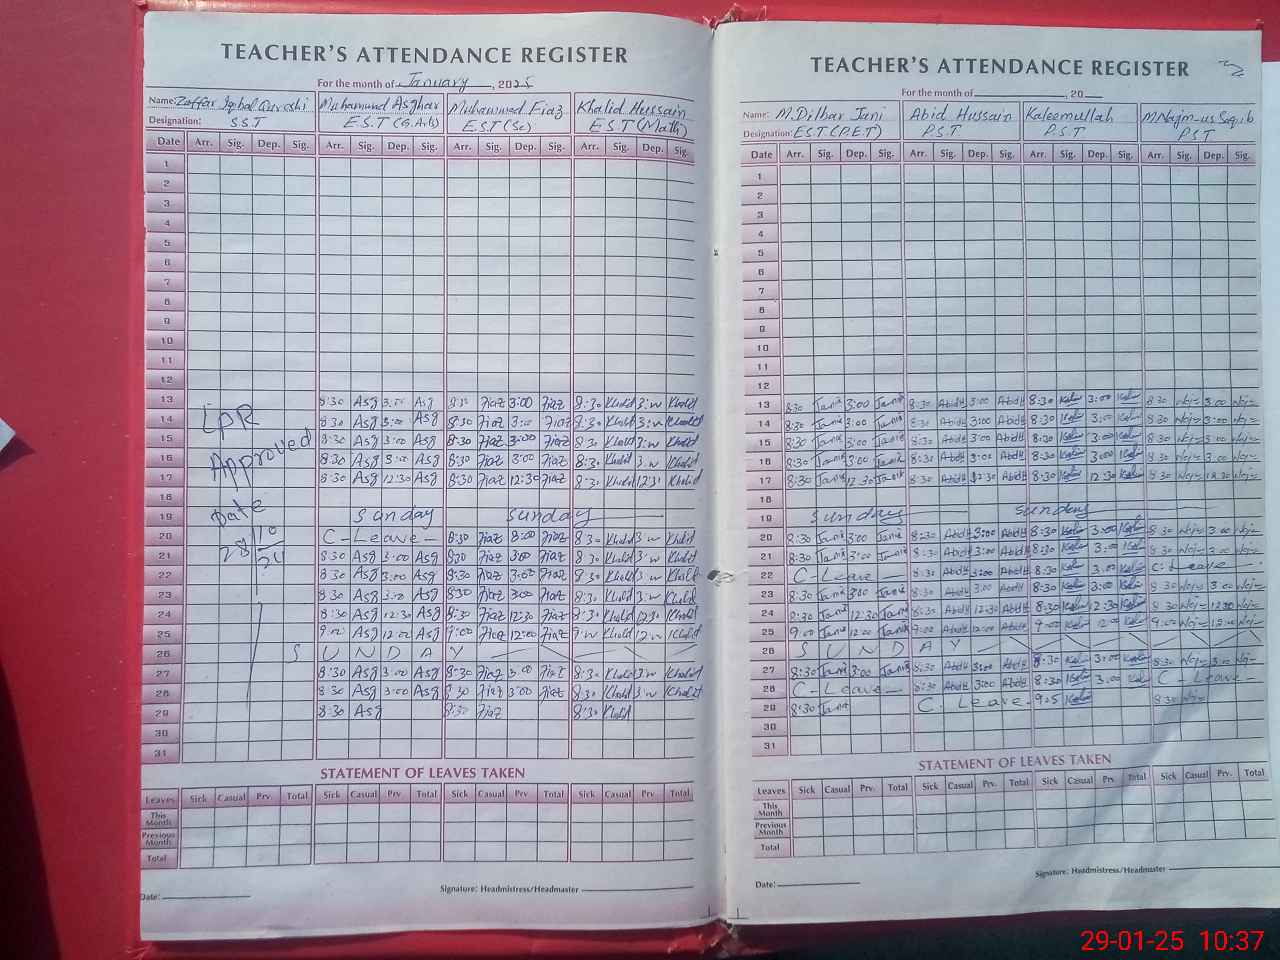 TEACHER'S ATTENDANCE REGISTER
For the month of January, 2025
Name: Zaffar Iqbal Qureshi Muhammad Asghar Muhammad Fiaz Khalid Hussain
Designation: S.S.T E.S.T (G.Arts) E.S.T (Sc) E.S.T (Math)
Date Arr. Sig. Dep. Sig. Arr. Sig. Dep. Sig. Arr. Sig. Dep. Sig. Arr. Sig. Dep. Sig.
1
2
3
4
5
6
7
8
9
10
11
12
13 8:30 Asg 3:00 Asg 8:30 Fiaz 3:00 Fiaz 8:30 Khalid 3:00 Khalid
14 LPR 8:30 Asg 3:00 Asg 8:30 Fiaz 3:00 Fiaz 8:30 Khalid 3:00 Khalid
15 Approved 8:30 Asg 3:00 Asg 8:30 Fiaz 3:00 Fiaz 8:30 Khalid 3:00 Khalid
16 8:30 Asg 3:00 Asg 8:30 Fiaz 3:00 Fiaz 8:30 Khalid 3:00 Khalid
17 8:30 Asg 12:30 Asg 8:30 Fiaz 12:30 Fiaz 8:30 Khalid 12:30 Khalid
18
19 Date Sunday Sunday
20 28/10/24 C-Leave 8:30 Fiaz 3:00 Fiaz 8:30 Khalid 3:00 Khalid
21 8:30 Asg 3:00 Asg 8:30 Fiaz 3:00 Fiaz 8:30 Khalid 3:00 Khalid
22 8:30 Asg 3:00 Asg 8:30 Fiaz 3:00 Fiaz 8:30 Khalid 3:00 Khalid
23 8:30 Asg 3:00 Asg 8:30 Fiaz 3:00 Fiaz 8:30 Khalid 3:00 Khalid
24 8:30 Asg 12:30 Asg 8:30 Fiaz 12:30 Fiaz 8:30 Khalid 12:30 Khalid
25 9:00 Asg 12:00 Asg 9:00 Fiaz 12:00 Fiaz 9:00 Khalid 12:00 Khalid
26 S U N D A Y
27 8:30 Asg 3:00 Asg 8:30 Fiaz 3:00 Fiaz 8:30 Khalid 3:00 Khalid
28 8:30 Asg 3:00 Asg 8:30 Fiaz 3:00 Fiaz 8:30 Khalid 3:00 Khalid
29 8:30 Asg 8:30 Fiaz 8:30 Khalid
30
31
STATEMENT OF LEAVES TAKEN
Leaves Sick Casual Prv. Total Sick Casual Prv. Total Sick Casual Prv. Total Sick Casual Prv. Total
This Month
Previous Month
Total
Date: Signature: Headmistress/Headmaster
TEACHER'S ATTENDANCE REGISTER
For the month of , 20
Name: M.Dilbar Jani Abid Hussain Kaleemullah M.Najm-us Saqib
Designation: E.S.T (P.E.T) P.S.T P.S.T P.S.T
Date Arr. Sig. Dep. Sig. Arr. Sig. Dep. Sig. Arr. Sig. Dep. Sig. Arr. Sig. Dep. Sig.
1
2
3
4
5
6
7
8
9
10
11
12
13 8:30 Jani 3:00 Jani 8:30 Abid 3:00 Abid 8:30 3:00 8:30 3:00
14 8:30 Jani 3:00 Jani 8:30 Abid 3:00 Abid 8:30 3:00 8:30 3:00
15 8:30 Jani 3:00 Jani 8:30 Abid 3:00 Abid 8:30 3:00 8:30 3:00
16 8:30 Jani 3:00 Jani 8:30 Abid 3:00 Abid 8:30 3:00 8:30 3:00
17 8:30 Jani 12:30 Jani 8:30 Abid 12:30 Abid 8:30 12:30 8:30 12:30
18
19 Sunday Sunday
20 8:30 Jani 3:00 Jani 8:30 Abid 3:00 Abid 8:30 3:00 8:30 3:00
21 8:30 Jani 3:00 Jani 8:30 Abid 3:00 Abid 8:30 3:00 8:30 3:00
22 C-Leave 8:30 Abid 3:00 Abid 8:30 3:00 C-Leave
23 8:30 Jani 3:00 Jani 8:30 Abid 3:00 Abid 8:30 3:00 8:30 3:00
24 8:30 Jani 12:30 Jani 8:30 Abid 12:30 Abid 8:30 12:30 8:30 12:30
25 9:00 Jani 12:00 Jani 9:00 Abid 12:00 Abid 9:00 12:00 9:00 12:00
26 S U N D A Y
27 8:30 Jani 3:00 Jani 8:30 Abid 3:00 Abid 8:30 3:00 8:30 3:00
28 C-Leave 8:30 Abid 3:00 Abid 8:30 3:00 C-Leave
29 8:30 Jani C. Leave 9:05 8:30
30
31
STATEMENT OF LEAVES TAKEN
Leaves Sick Casual Prv. Total Sick Casual Prv. Total Sick Casual Prv. Total Sick Casual Prv. Total
This Month
Previous Month
Total
Date: Signature: Headmistress/Headmaster
29-01-25 10:37